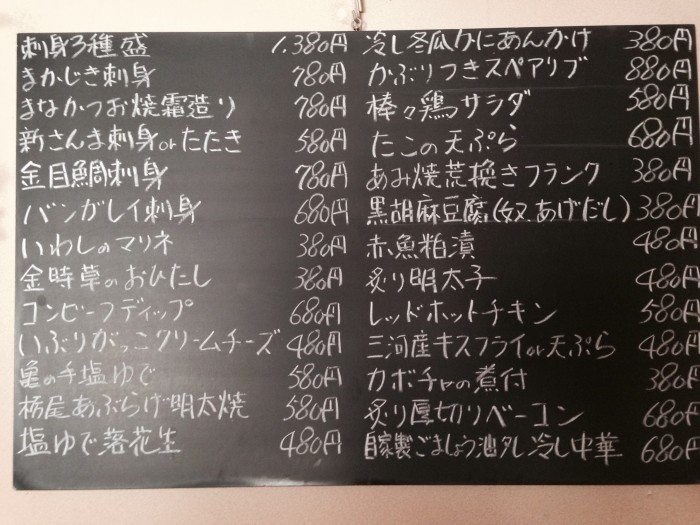 刺身3種盛 1,380円
まかじき刺身 780円
まなかつお焼霜造り 780円
新さんま刺身orたたき 580円
金目鯛刺身 780円
バンガレイ刺身 680円
いわしのマリネ 380円
金時草のおひたし 380円
コンビーフディップ 680円
いぶりがっこクリームチーズ 480円
亀の手塩ゆで 580円
栃尾あぶらげ明太焼 580円
塩ゆで落花生 480円
冷し冬瓜カニあんかけ 380円
かぶりつきスペアリブ 880円
棒々鶏サラダ 580円
たこの天ぷら 680円
あみ焼荒挽きフランク 380円
黒胡麻豆腐(奴.あげだし) 380円
赤魚粕漬 480円
炙り明太子 480円
レッドホットチキン 580円
三河産キスフライor天ぷら 480円
カボチャの煮付 380円
炙り厚切りベーコン 680円
自家製ごましょう油ダレ冷し中華 680円